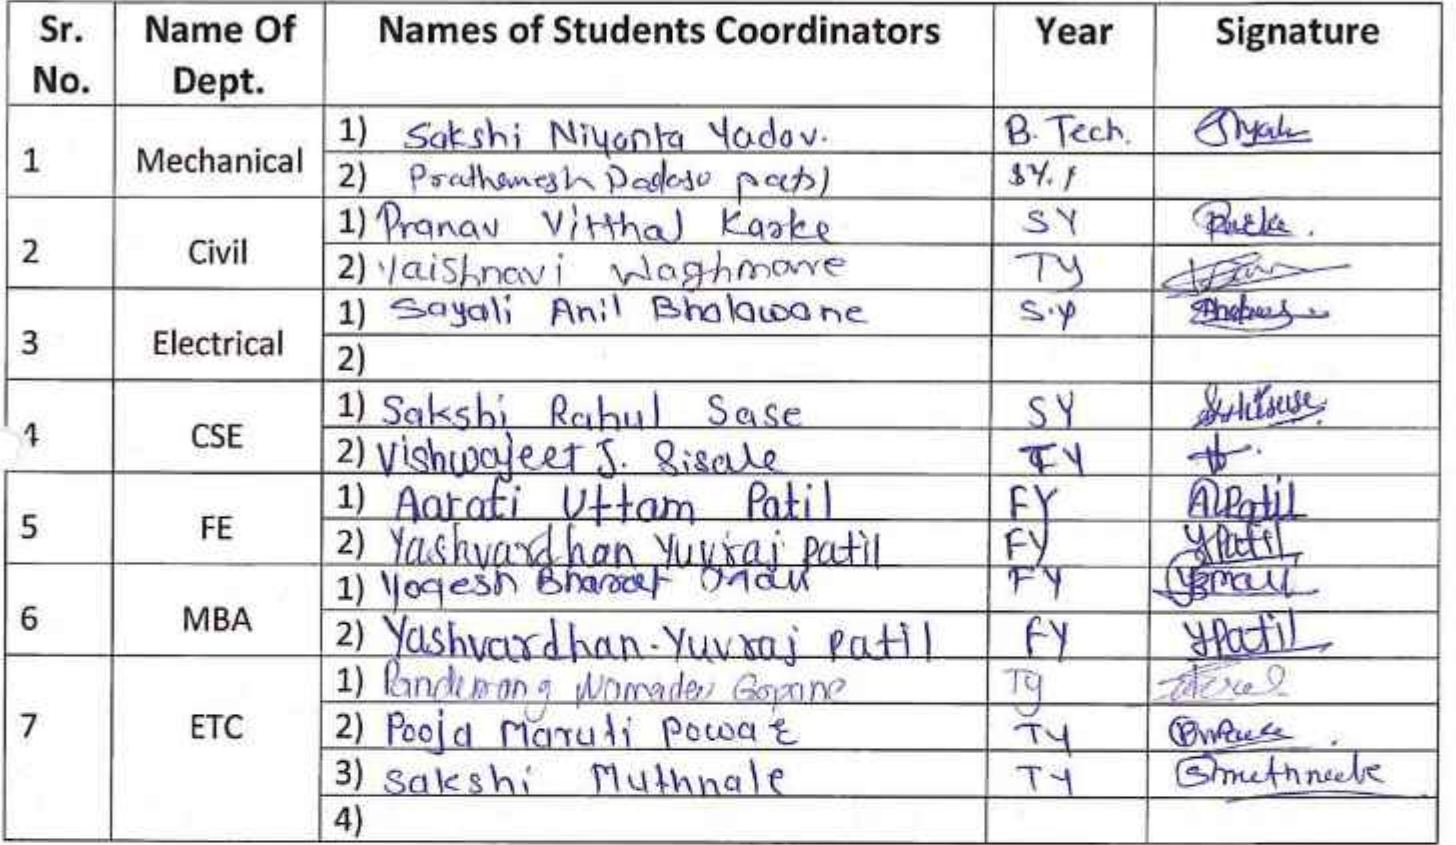 Sr. No. Name Of Dept. Names of Students Coordinators Year Signature
1 Mechanical
1) Sakshi Niyanta Yadav. B. Tech.
2) Prathamesh Dadaso patil S.Y.
2 Civil
1) Pranav Vitthal Karke SY
2) Vaishnavi Waghmare TY
3 Electrical
1) Sayali Anil Bhalawane S.Y
2)
4 CSE
1) Sakshi Rahul Sase SY
2) Vishwajeet J. Sisale TY
5 FE
1) Aarati Uttam Patil FY AUPatil
2) Yashvardhan Yuvraj patil FY YPatil
6 MBA
1) Yogesh Bharat FY
2) Yashvardhan-Yuvraj patil FY YPatil
7 ETC
1) Pandurang Namadev Gopane Ty
2) Pooja Maruti Powar TY
3) Sakshi Muthnale TY
4)